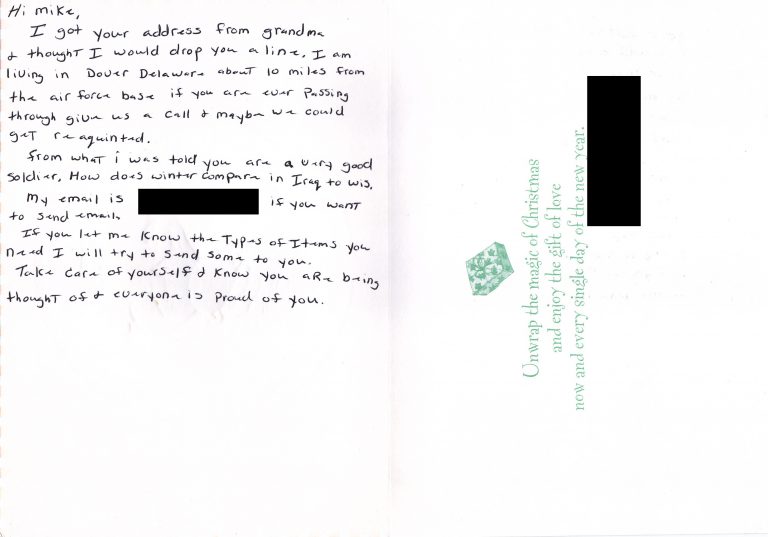 Hi mike,
I got your address from grandma
& thought I would drop you a line. I am
living in Dover Delaware about 10 miles from
the air force base if you are ever Passing
through give us a call & maybe we could
get reaquinted.
From what i was told you are a very good
soldier. How does winter compare in Iraq to wis.
My email is if you want
to send email.
If you let me know the Types of Items you
need I will try to send some to you.
Take care of yourself & know you are being
thought of & everyone is Proud of you.
Unwrap the magic of Christmas
and enjoy the gift of love
now and every single day of the new year.